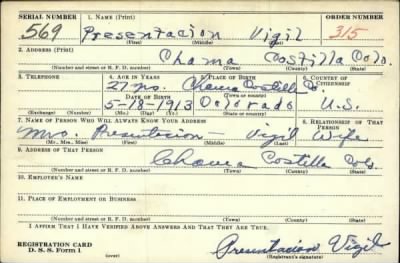 SERIAL NUMBER 1. NAME (Print) ORDER NUMBER
569 Presentacion Vigil 315
(First) (Middle) (Last)
2. ADDRESS (Print)
Chama Costilla Colo.
(Number and street or R. F. D. number) (Town) (County) (State)
3. TELEPHONE 4. AGE IN YEARS 5. PLACE OF BIRTH 6. COUNTRY OF CITIZENSHIP
27 Chama Costilla Co.
DATE OF BIRTH (Town or county)
5-18-1913 Colorado U.S.
(Exchange) (Number) (Mo.) (Day) (Yr.) (State or country)
7. NAME OF PERSON WHO WILL ALWAYS KNOW YOUR ADDRESS 8. RELATIONSHIP OF THAT PERSON
Mrs. Presentacion — Vigil Wife
(Mr., Mrs., Miss) (First) (Middle) (Last)
9. ADDRESS OF THAT PERSON
Chama Costilla Colo.
(Number and street or R. F. D. number) (Town) (County) (State)
10. EMPLOYER'S NAME
11. PLACE OF EMPLOYMENT OR BUSINESS
(Number and street or R. F. D. number) (Town) (County) (State)
I AFFIRM THAT I HAVE VERIFIED ABOVE ANSWERS AND THAT THEY ARE TRUE.
REGISTRATION CARD
D. S. S. Form 1 Presentacion Vigil
(Registrant's signature)